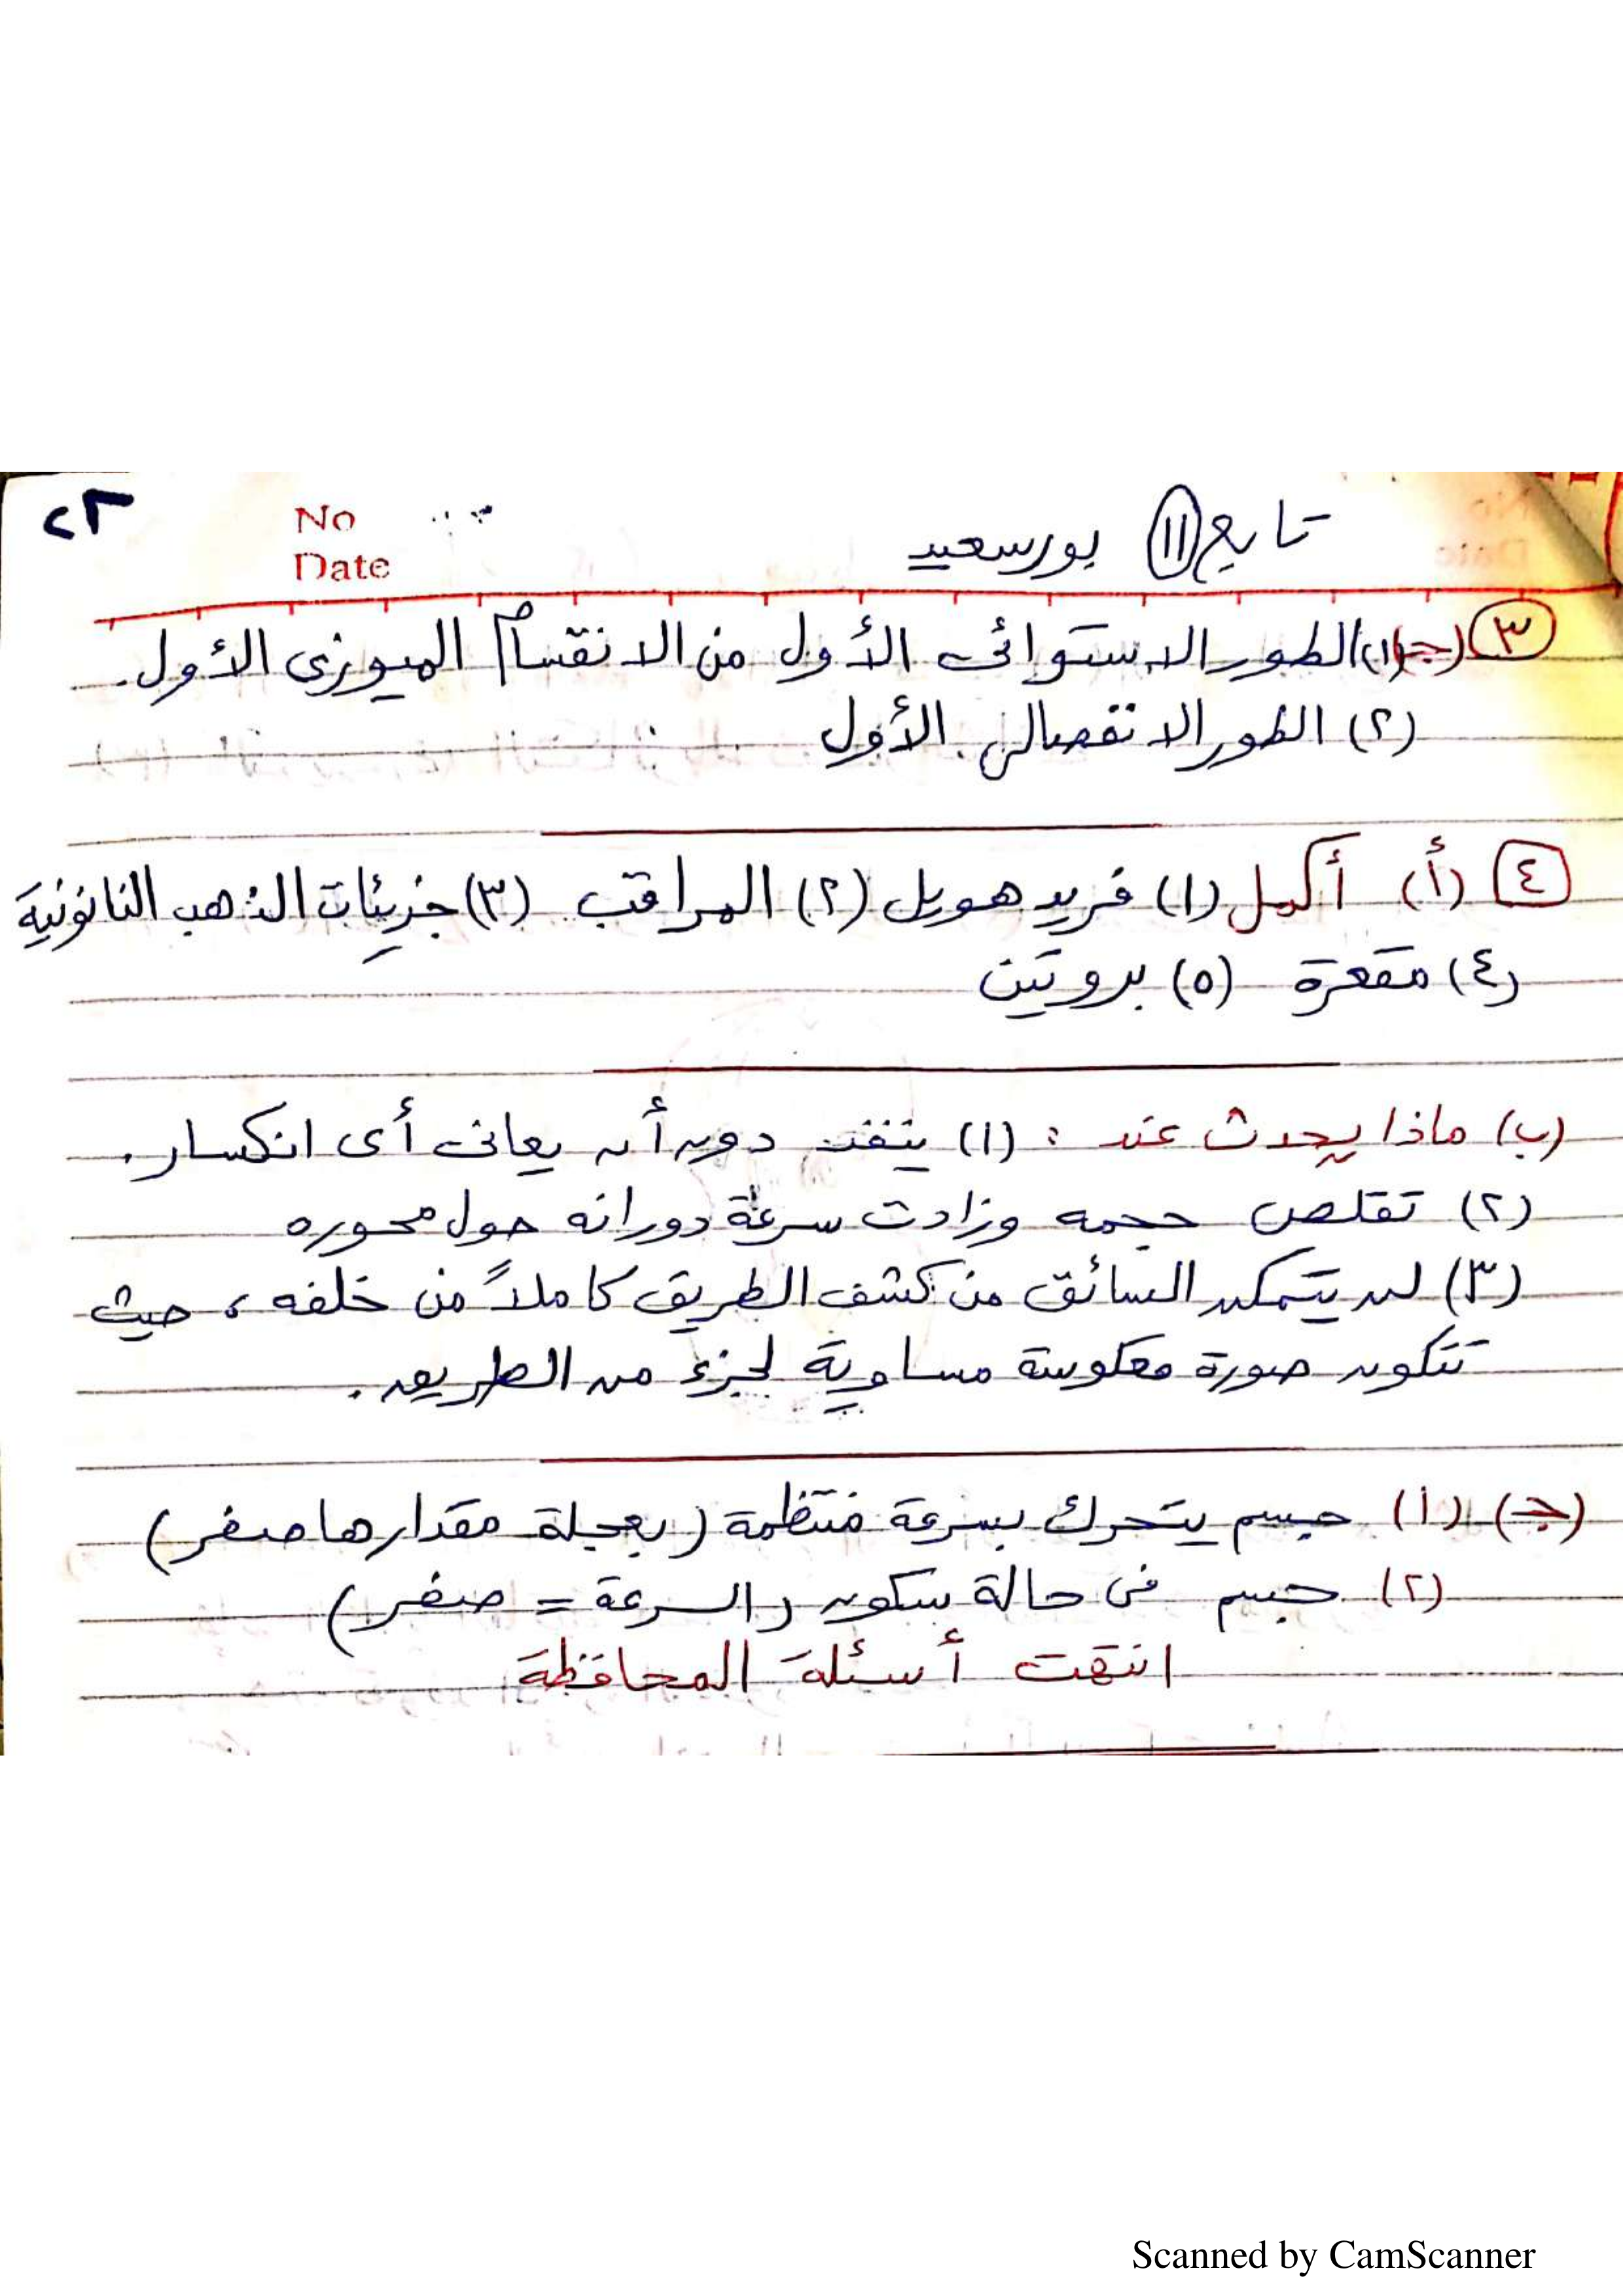 ٢٣
No
Date
تابع (١١) بورسعيد
(٣) (جـ) (١) الطور الاستوائى الأول من الانقسام الميوزى الأول.
(٢) الطور الانفصالى الأول
[٤] (أ) أكمل (١) فريد هويل (٢) المراقب (٣) جزيئات الذهب النانونية
(٤) مقعرة (٥) بروتين
(ب) ماذا يحدث عند : (١) ينفذ دون أن يعانى أى انكسار.
(٢) تقلص حجمه وزادت سرعة دورانه حول محوره
(٣) لن يتمكن السائق من كشف الطريق كاملاً من خلفه ، حيث
تتكون صورة معكوسة مساوية لجزء من الطريق.
(جـ) (١) جسم يتحرك بسرعة منتظمة (بعجلة مقدارها صفر)
(٢) جسم فى حالة سكون (السرعة = صفر)
انتهت أسئلة المحافظة
Scanned by CamScanner